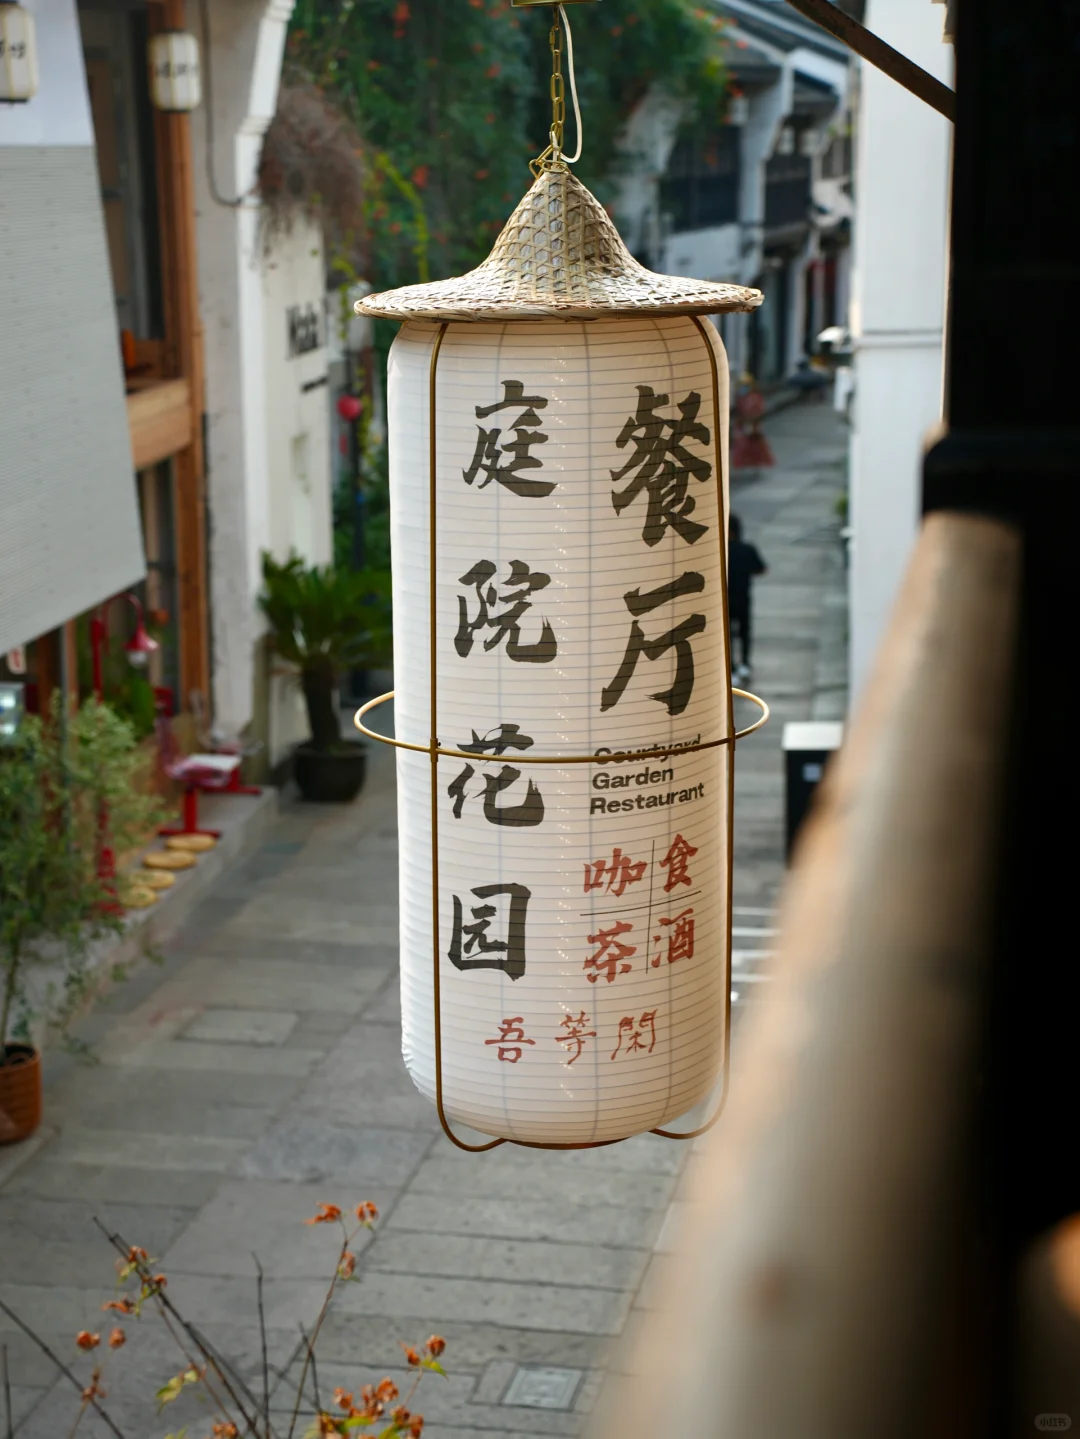 餐厅
庭院花园
Courtyard
Garden
Restaurant
咖食
茶酒
吾等閑
小红书